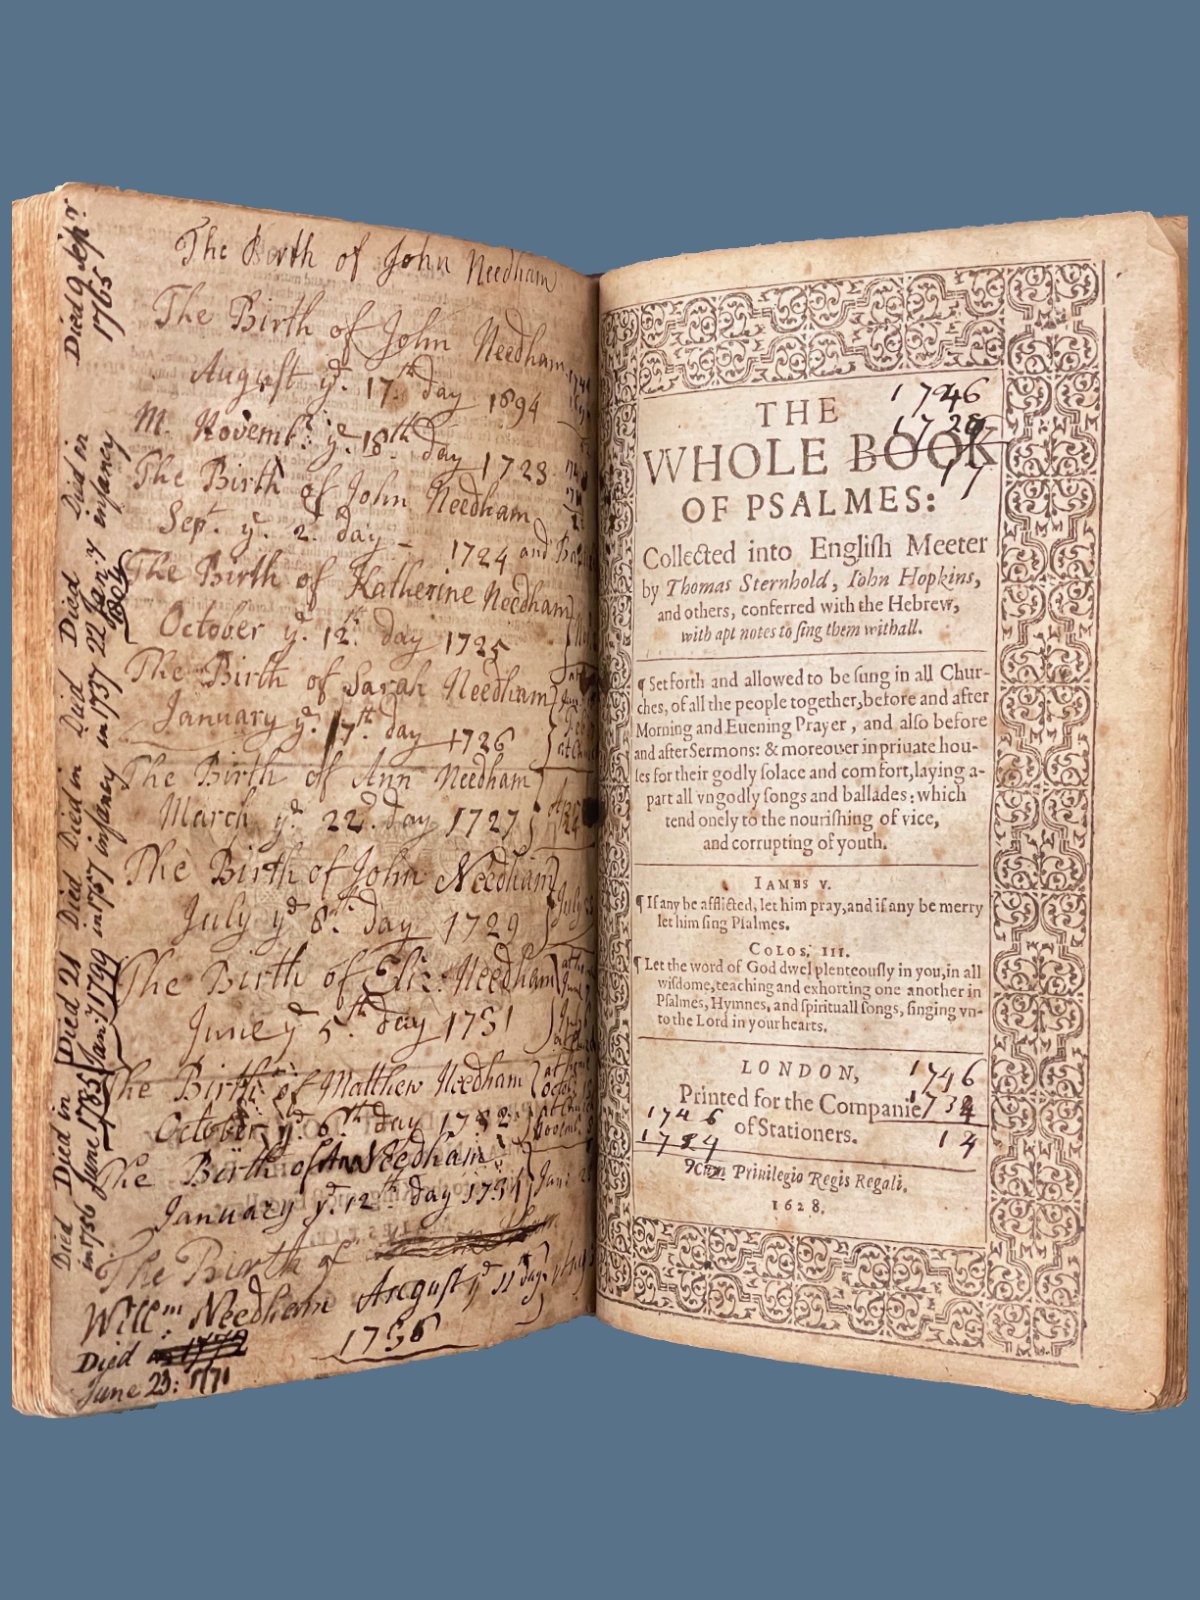 The Birth of John Needham
The Birth of John Needham
August ye. 17th day 1694
M. Novembr. ye. 18th day 1723
The Birth of John Needham
Sept. ye. 2d. day 1724 and
The Birth of Katherine Needham
October ye. 12th. day 1725
The Birth of Sarah Needham
January ye. 17th. day 1726
The Birth of Ann Needham
March ye. 22d. day 1727
The Birth of John Needham
July ye 8th. day 1729
The Birth of Eliz: Needham
June ye 5th day 1731
The Birth of Matthew Needham
October ye. 6th. day 1732
The Birth of Ann Needham
January ye. 12th day 1734
The Birth of
Willm Needham August ye 11th day
1736
Died
June 23: 1771
Died 9 Sepr.
1765
Died in
infancy
Died
22 Jan:y
1804
Died
in 1737
Died in
infancy
Died
in 1757
Died 21
Jan:y 1799
Died in
June 1785
Died
in 1756
1746
17
THE
WHOLE BOOK
OF PSALMES:
Collected into English Meeter
by Thomas Sternhold, Iohn Hopkins,
and others, conferred with the Hebrew,
with apt notes to sing them withall.
¶ Set forth and allowed to be sung in all Chur-
ches, of all the people together, before and after
Morning and Euening Prayer, and also before
and after Sermons: & moreouer in priuate hou-
ses for their godly solace and comfort, laying a-
part all vngodly songs and ballades: which
tend onely to the nourishing of vice,
and corrupting of youth.
IAMES V.
¶ If any be afflicted, let him pray, and if any be merry
let him sing Psalmes.
COLOS. III.
¶ Let the word of God dwel plenteously in you, in all
wisdome, teaching and exhorting one another in
Psalmes, Hymnes, and spirituall songs, singing vn-
to the Lord in your hearts.
LONDON,
Printed for the Companie
of Stationers.
1746
1732
14
1746
1734
Cum Priuilegio Regis Regali.
1628.